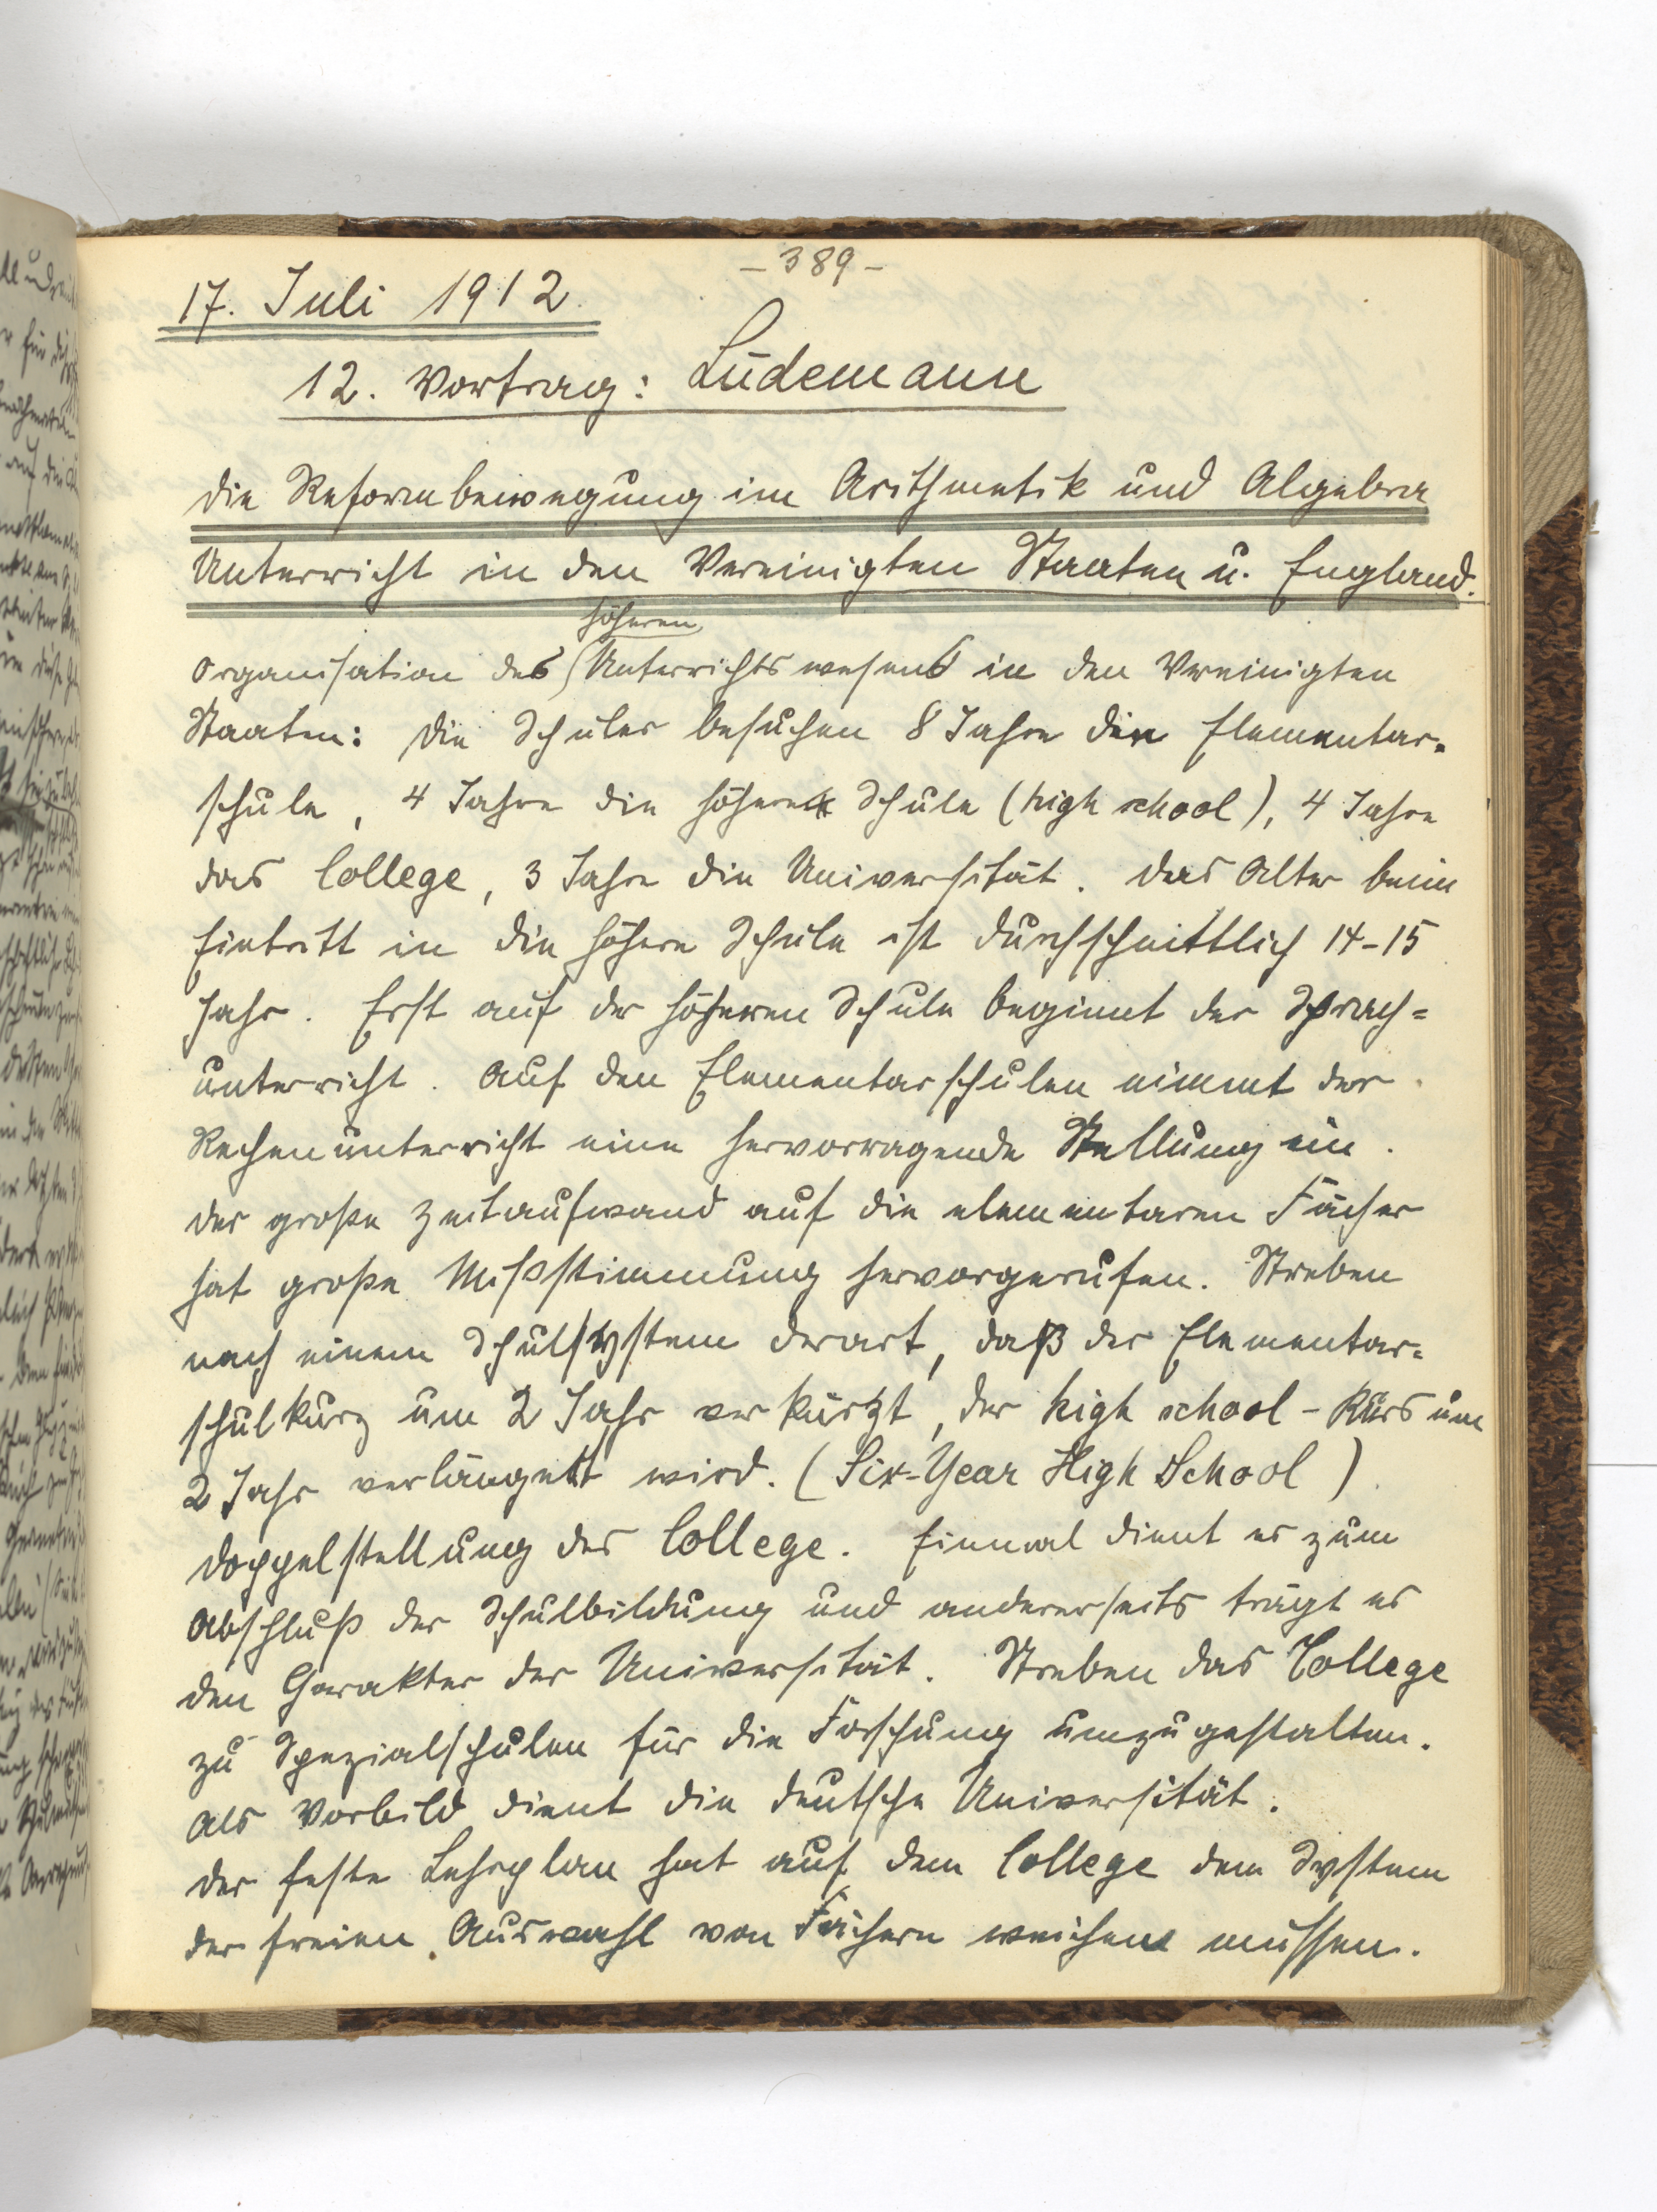 - 389 -
17. Juli 1912.
12. Vortrag: Lüdemann
Die Reformbewegung im Arithmetik und Algebra
Unterricht in den Vereinigten Staaten u. England.
höheren
Organisation des Unterrichtswesens in den Vereinigten
Staaten: Die Schüler besuchen 8 Jahre die Elementar=
schule, 4 Jahre die höhere Schule (high school), 4 Jahre
das College, 3 Jahre die Universität. Das Alter beim
Eintritt in die höhere Schule ist durchschnittlich 14-15
Jahr. Erst auf der höheren Schule beginnt der Sprach=
unterricht. Auf den Elementarschulen nimmt der
Rechenunterricht eine hervorragende Stellung ein.
Der große Zeitaufwand auf die elementaren Fächer
hat große Mißstimmung hervorgerufen. Streben
nach einem Schulsystem derart, daß der Elementar=
schulkurs um 2 Jahr verkürzt, der high school - Kurs um
2 Jahr verlängert wird. (Six-Year High School)
Doppelstellung des College. Einmal dient es zum
Abschluß der Schulbildung und andererseits trägt es
den Charakter der Universität. Streben das College
zu Spezialschulen für die Forschung umzugestalten.
Als Vorbild dient die deutsche Universität.
Der feste Lehrplan hat auf dem College dem System
der freien Auswahl von Fächern weichen müssen.